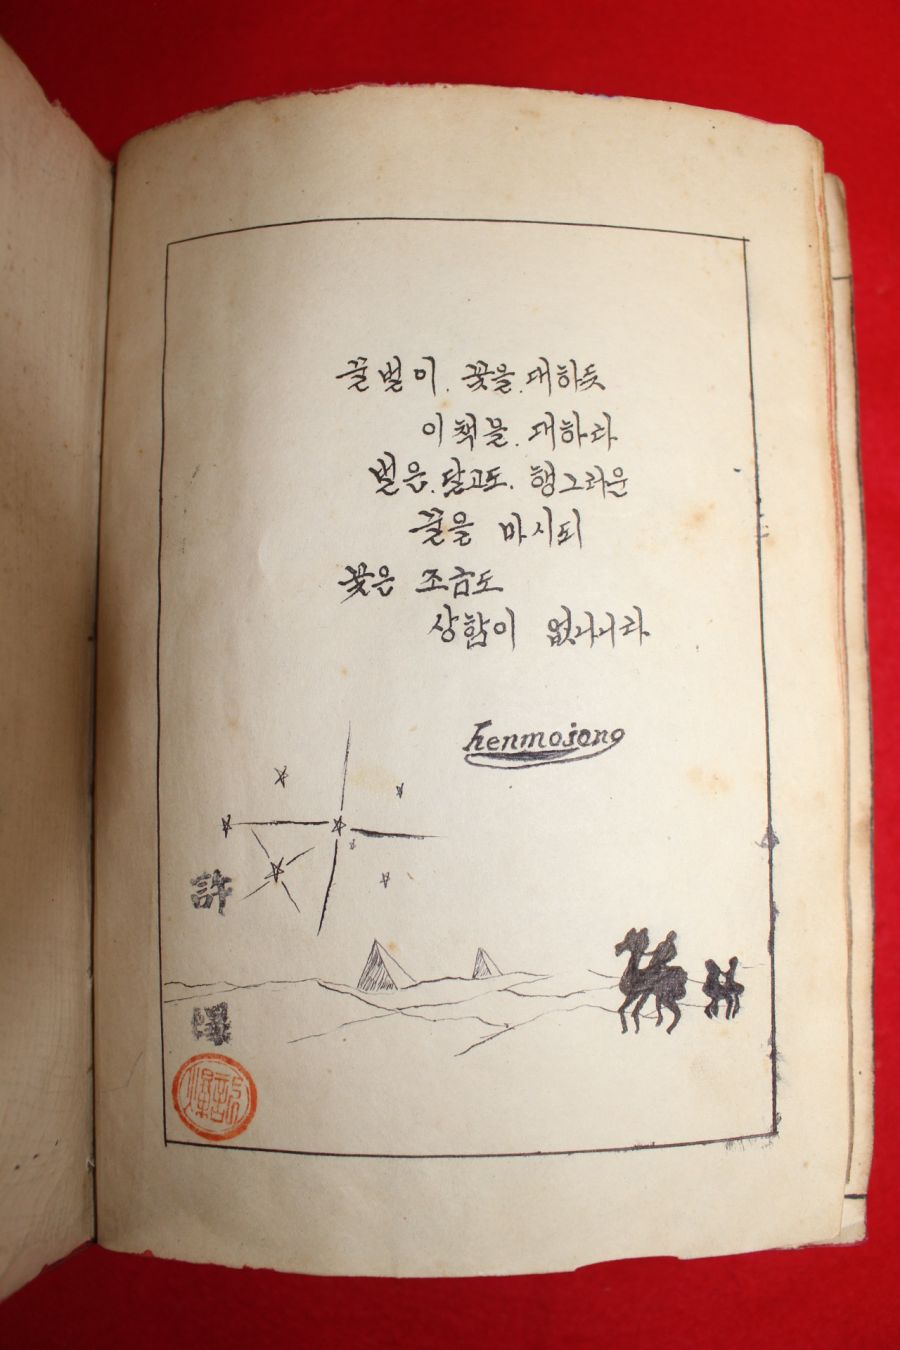 꿀벌이. 꽃을. 대하듯
이 책물. 대하라
벌은. 달고도. 행그러운
꿀을 마시되
꽃은 조금도
상함이 없나니라
henmojong
許